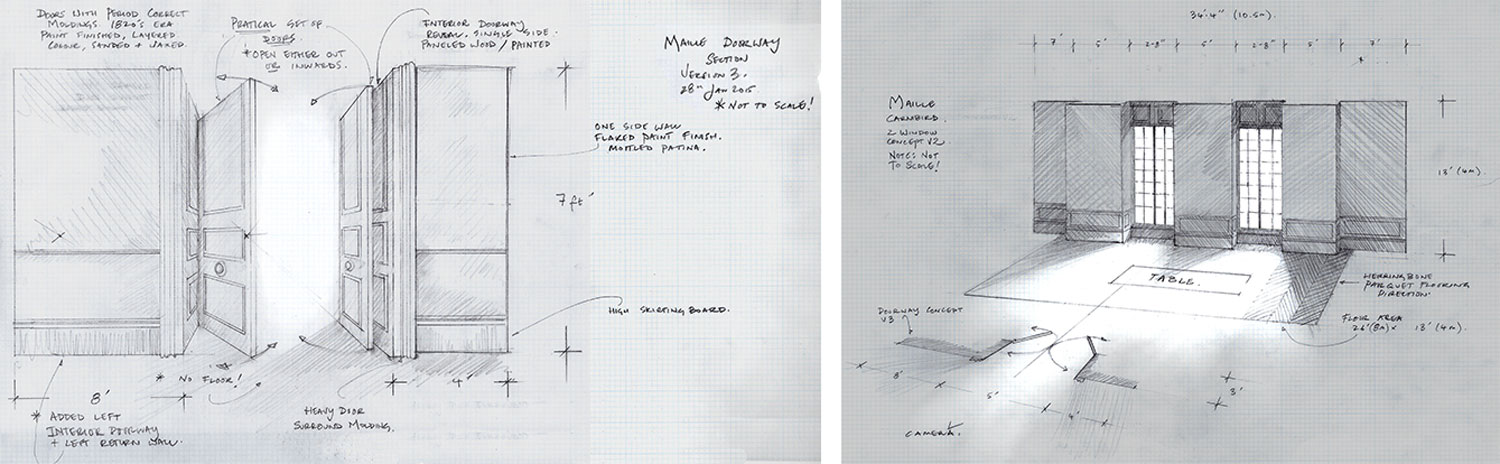 DOORS WITH PERIOD CORRECT
MOLDINGS 1820'S ERA
PAINT FINISHED, LAYERED
COLOUR, SANDED + WAXED.
PRATICAL SET OF
DOORS.
* OPEN EITHER OUT
OR INWARDS.
INTERIOR DOORWAY
REVEAL. SINGLE SIDE.
PANELED WOOD / PAINTED
MAILLE DOORWAY
SECTION
VERSION 3.
28TH JAN 2015
* NOT TO SCALE!
ONE SIDE WALL
FLARED PAINT FINISH.
MOTTLED PATINA.
7ft'
HIGH SKIRTING BOARD.
* NO FLOOR!
8'
4'
* ADDED LEFT
INTERIOR DOORWAY
+ LEFT RETURN WALL.
HEAVY DOOR
SURROUND MOLDING.
34'.4" (10.5m).
7' 5' 2-8" 5' 2-8" 5' 7'
MAILLE
CARNBIRD.
2 WINDOW
CONCEPT V2
NOTE: NOT
TO SCALE!
13' (4m).
TABLE.
HERRINGBONE
PARQUET FLOORING
DIRECTION.
DOORWAY CONCEPT
V3
FLOOR AREA
26'(8m) x 13' (4m).
8'
5'
4'
3'
CAMERA.